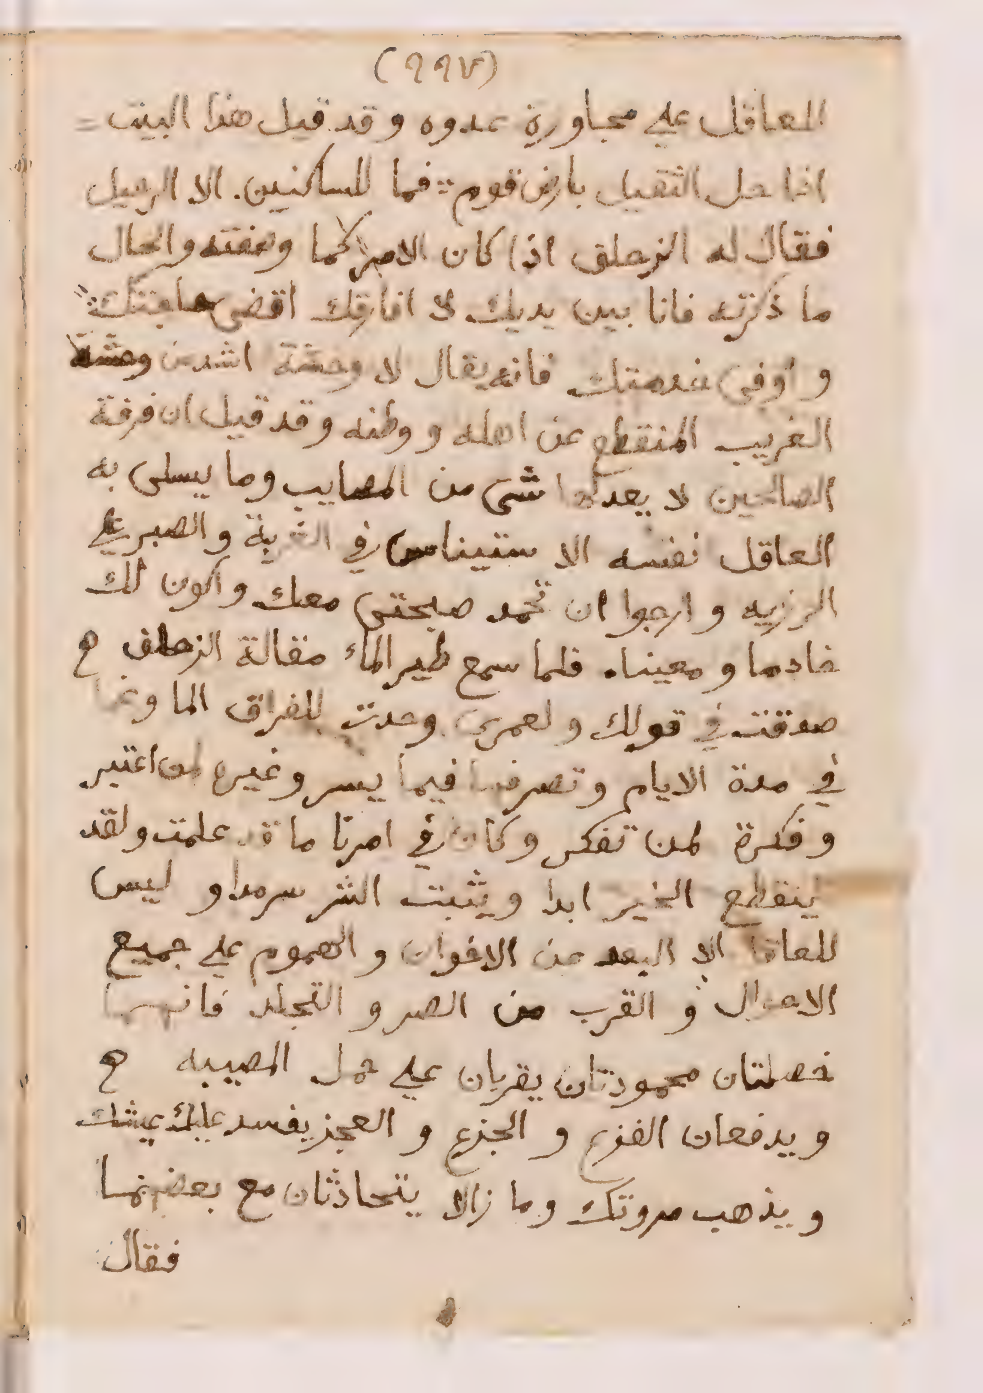 (٩٩٧)
العاقل علي مجاورة عدوه وقد قيل هذا البيت =
اذا حل الثقيل بارض قوم :: فما للساكنين. الا الرحيل
فقال له الزحلف اذا كان الامر كما وصفته والحال
ما ذكرته فانا بين يديك لا افارقك اقضى حاجتك
و اوفي خدمتك فانه يقال لا وحشة اشد من وحشة
الغريب المنقطع عن اهله ووطنه وقد قيل ان فرقة
الصالحين لا يعدلها شى من المصايب وما يسلى به
العاقل نفسه الا ستيناس في الغربة والصبر علي
الرزيه و ارجوا ان تحمد صبحتى معك واكون لك
خادما و معينا. فلما سمع طير الماء مقالة الزحلف ح
صدقت في قولك ولعمري وجدت للفراق الما
في مدة الايام وتصرفها فيما يسر وغيره لمن اعتبر
و فكرة لمن تفكر وكان في امرنا ما قد علمت ولقد
ينقطع الخير ابدا ويثبت الشر سرمدا و ليس
للعاقل الا البعد عن الاخوان و الهموم علي جميع
الاحوال و القرب من الصبر و التجلد فانهما
خصلتان محمودتان يقربان علي حمل المصيبه ح
و يدفعان الفزع و الجزع و العجز يفسد عليك عيشك
و يذهب مروتك وما زالا يتحادثان مع بعضهما
فقال